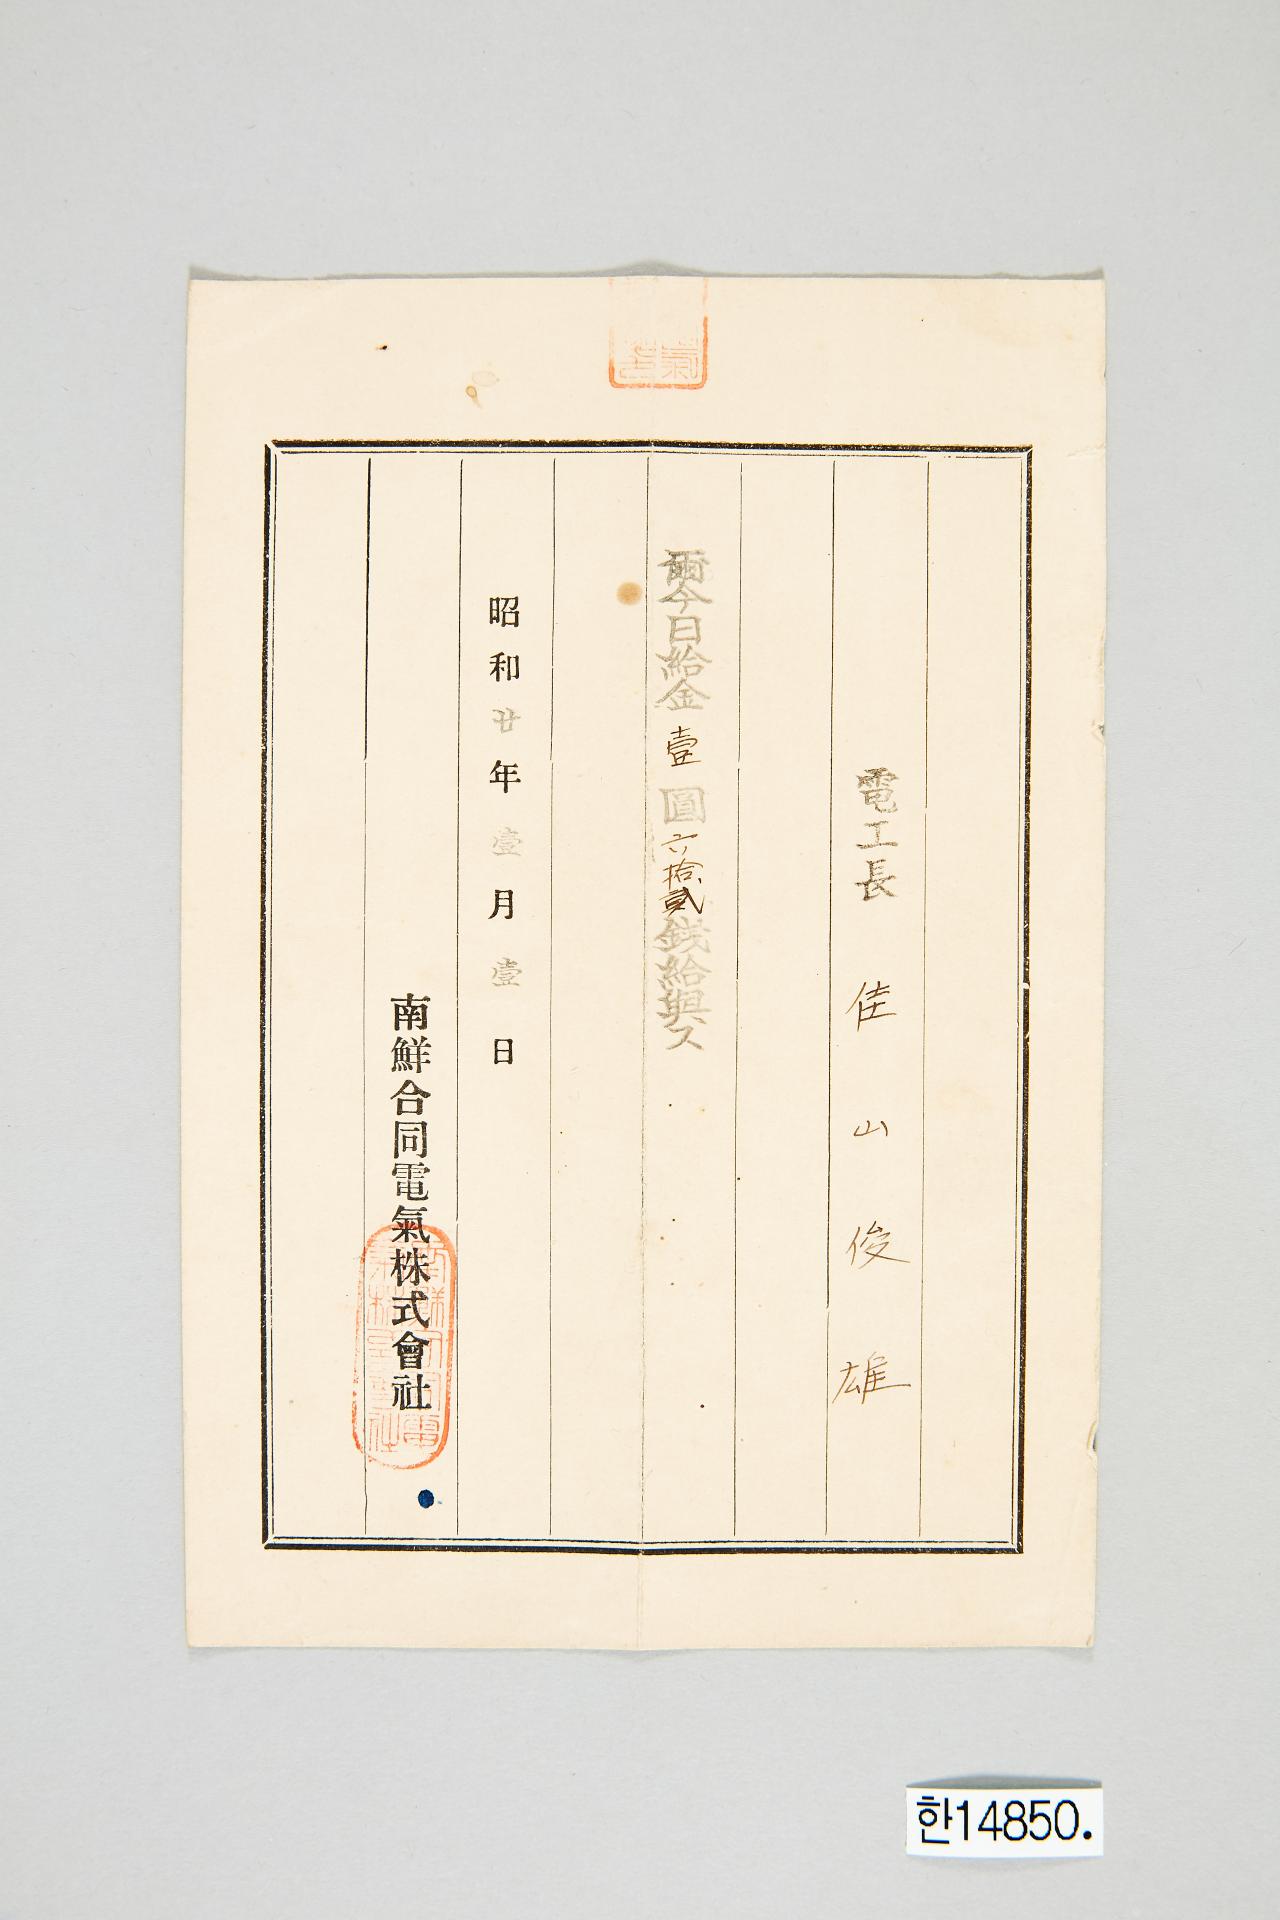 電工長 佳山俊雄
爾今日給金壹圓六拾貳銭給與ス
昭和廿年壹月壹日
南鮮合同電氣株式會社
한14850.